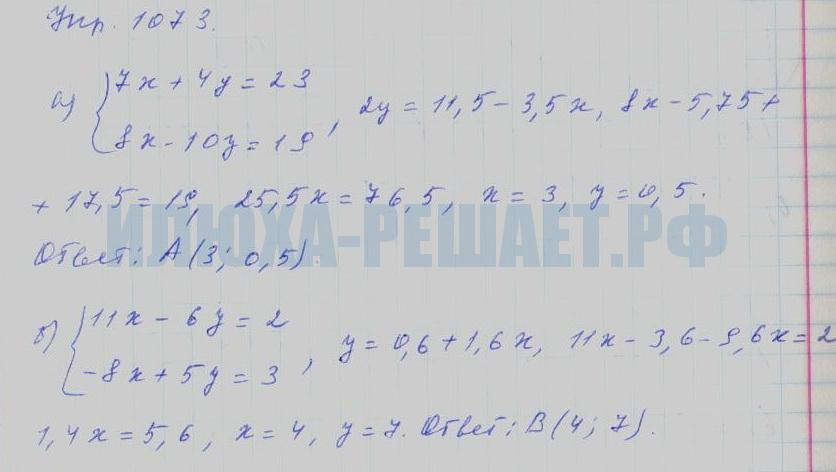 Упр. 1073.
а) { 7x + 4y = 23
8x - 10y = 19 , 2y = 11,5 - 3,5x, 8x - 5,75 +
+ 17,5 = 19, 25,5x = 76,5, x = 3, y = 0,5.
ИЛЮХА-РЕШАЕТ.РФ
Ответ: A(3; 0,5).
б) { 11x - 6y = 2
-8x + 5y = 3 , y = 0,6 + 1,6x, 11x - 3,6 - 9,6x = 2
1,4x = 5,6, x = 4, y = 7. Ответ: B(4; 7).